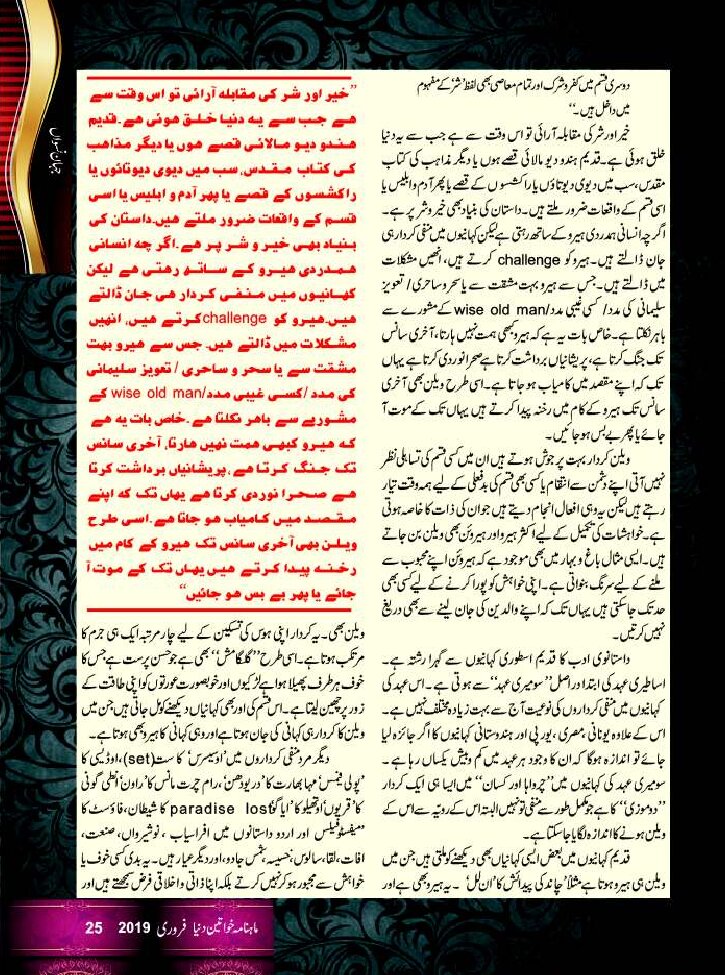 دوسری قسم میں کفر و شرک اور تمام معاصی بھی لفظ ’شر‘ کے مفہوم
میں داخل ہیں۔“
خیر اور شر کی مقابلہ آرائی تو اس وقت سے ہے جب سے یہ دنیا
خلق ہوئی ہے۔ قدیم ہندو دیو مالائی قصے ہوں یا دیگر مذاہب کی کتاب
مقدس، سب میں دیوی دیوتاؤں یا راکشسوں کے قصے یا پھر آدم و ابلیس یا
اسی قسم کے واقعات ضرور ملتے ہیں۔ داستان کی بنیاد بھی خیر و شر پر ہے۔
اگر چہ انسانی ہمدردی ہیرو کے ساتھ رہتی ہے لیکن کہانیوں میں منفی کردار ہی
جان ڈالتے ہیں۔ ہیرو کو challenge کرتے ہیں، انھیں مشکلات
میں ڈالتے ہیں۔ جس سے ہیرو بہت مشقت سے یا سحر و ساحری / تعویز
سلیمانی کی مدد / کسی غیبی مدد/wise old man کے مشورے سے
باہر نکلتا ہے۔ خاص بات یہ ہے کہ ہیرو کبھی ہمت نہیں ہارتا، آخری سانس
تک جنگ کرتا ہے، پریشانیاں برداشت کرتا ہے صحرا نوردی کرتا ہے یہاں
تک کہ اپنے مقصد میں کامیاب ہو جاتا ہے۔ اسی طرح ویلن بھی آخری
سانس تک ہیرو کے کام میں رخنہ پیدا کرتے ہیں یہاں تک کے موت آ
جائے یا پھر بے بس ہو جائیں۔
ویلن کردار بہت پر جوش ہوتے ہیں ان میں کسی قسم کی تساہلی نظر
نہیں آتی اپنے دشمن سے انتقام یا کسی بھی قسم کی بدفعلی کے لیے ہمہ وقت تیار
رہتے ہیں لیکن یہ وہی افعال انجام دیتے ہیں جو ان کی ذات کا خاصہ ہوتی
ہے۔ خواہشات کی تکمیل کے لیے اکثر ہیرو اور ہیروئن بھی ویلن بن جاتے
ہیں۔ ایسی مثال باغ و بہار میں بھی موجود ہے کہ ہیروئن اپنے محبوب سے
ملنے کے لیے سرنگ بنواتی ہے۔ اپنی خواہش کو پورا کرنے کے لیے کسی بھی
حد تک جا سکتی ہیں یہاں تک کہ اپنے والدین کی جان لینے سے بھی دریغ
نہیں کرتیں۔
داستانوی ادب کا قدیم اسطوری کہانیوں سے گہرا رشتہ ہے۔
اساطیری عہد کی ابتدا در اصل ”سومیری عہد“ سے ہوتی ہے۔ اس عہد کی
کہانیوں میں منفی کرداروں کی نوعیت آج سے بہت زیادہ مختلف نہیں ہے۔
اس کے علاوہ یونانی، مصری، یورپی اور ہندوستانی کہانیوں کا اگر جائزہ لیا
جائے تو اندازہ ہوگا کہ ان کا وجود ہر عہد میں کم و بیش یکساں رہا ہے۔
سومیری عہد کی کہانیوں میں ”چرواہا اور کسان“ میں ایسا ہی ایک کردار
”دوموزی“ کا ہے جو مکمل طور سے منفی تو نہیں البتہ اس کے رویہ سے اس کے
ویلن ہونے کا اندازہ لگایا جا سکتا ہے۔
قدیم کہانیوں میں بعض ایسی کہانیاں بھی دیکھنے کو ملتی ہیں جن میں
ویلن ہی ہیرو ہوتا ہے مثلاً ’چاند کی پیدائش کا ’ان لل‘۔ یہ ہیرو بھی ہے اور
”خیر اور شر کی مقابلہ آرائی تو اس وقت سے
ہے جب سے یہ دنیا خلق ہوئی ہے۔ قدیم
ہندو دیو مالائی قصے ہوں یا دیگر مذاہب
کی کتاب مقدس، سب میں دیوی دیوتائوں یا
راکشسوں کے قصے یا پھر آدم و ابلیس یا اسی
قسم کے واقعات ضرور ملتے ہیں۔ داستان کی
بنیاد بھی خیر و شر پر ہے۔ اگر چہ انسانی
ہمدردی ہیرو کے ساتھ رہتی ہے لیکن
کہانیوں میں منفی کردار ہی جان ڈالتے
ہیں۔ ہیرو کو challenge کرتے ہیں، انھیں
مشکلات میں ڈالتے ہیں۔ جس سے ہیرو بہت
مشقت سے یا سحر و ساحری / تعویز سلیمانی
کی مدد / کسی غیبی مدد/wise old man کے
مشورے سے باہر نکلتا ہے۔ خاص بات یہ ہے
کہ ہیرو کبھی ہمت نہیں ہارتا، آخری سانس
تک جنگ کرتا ہے، پریشانیاں برداشت کرتا
ہے صحرا نوردی کرتا ہے یہاں تک کہ اپنے
مقصد میں کامیاب ہو جاتا ہے۔ اسی طرح
ویلن بھی آخری سانس تک ہیرو کے کام میں
رخنہ پیدا کرتے ہیں یہاں تک کے موت آ
جائے یا پھر بے بس ہو جائیں“
ویلن بھی۔ یہ کردار اپنی ہوس کی تسکین کے لیے چار مرتبہ ایک ہی جرم کا
مرتکب ہوتا ہے۔ اسی طرح ”گلگامش“ بھی ہے جو حسن پرست ہے جس کا
خوف ہر طرف پھیلا ہوا ہے لڑکیوں اور خوبصورت عورتوں کو اپنی طاقت کے
زور پر چھین لیتا ہے۔ اس قسم کی اور بھی کہانیاں دیکھنے کو مل جاتی ہیں جن میں
ویلن کا کردار ہی کہانی کی جان ہوتا ہے اور وہی کہانی کا ہیرو بھی ہوتا ہے۔
دیگر مرد منفی کرداروں میں ’اوسیرس‘ کا ست (set)، اوڈیسی کا
’پولی فیمس‘ مہا بھارت کا ’دریودھن‘، رام چرت مانس کا ’راون‘ انطی گونی
کا ’قریون‘ اوتھیلو کا ’ایاگو‘ paradise lost کا شیطان، فاؤسٹ کا
’میفسٹوفیلس‘ اور اردو داستانوں میں افراسیاب، نوشیرواں، صنعت،
آفات، لقا، سالوس، حسینہ، شمس جادو، اور دیگر عیار ہیں۔ یہ بدی کسی خوف یا
خواہش سے مجبور ہو کر نہیں کرتے بلکہ اپنا ذاتی و اخلاقی فرض سمجھتے ہیں اور
جہان نسواں
ماہنامہ خواتین دنیا فروری 2019 25